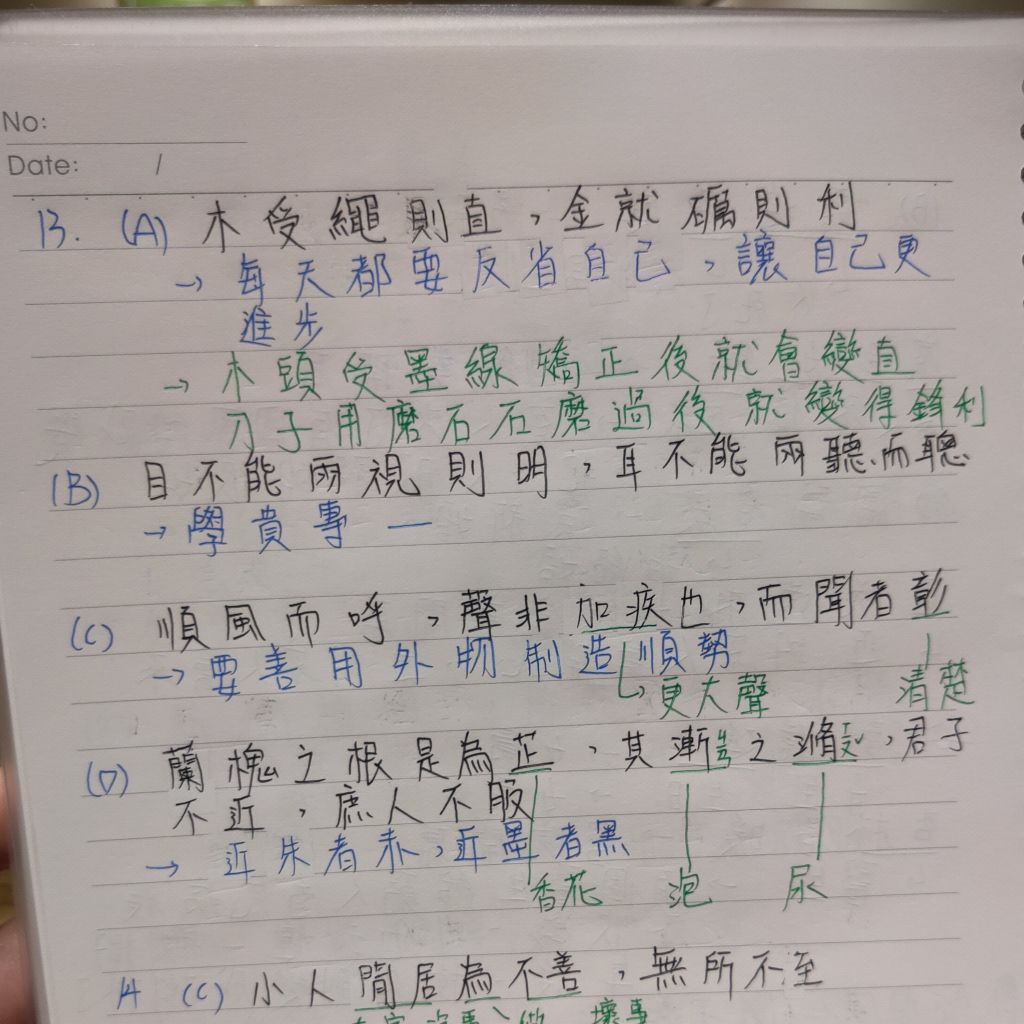 No:
Date: /
13. (A) 木受繩則直,金就礪則利
→ 每天都要反省自己,讓自己更
進步
→ 木頭受墨線矯正後就會變直
刀子用磨石石磨過後就變得鋒利
(B) 目不能兩視則明,耳不能兩聽而聰
→ 學貴專一
(C) 順風而呼,聲非加疾也,而聞者彰
→ 要善用外物制造順勢
↳ 更大聲 清楚
(D) 蘭槐之根是為芷,其漸ㄐㄧㄢ之滫ㄒㄧㄡˇ,君子
不近,庶人不服
→ 近朱者赤,近墨者黑
香花 泡 尿
14 (C) 小人閒居為不善,無所不至
做 壞事